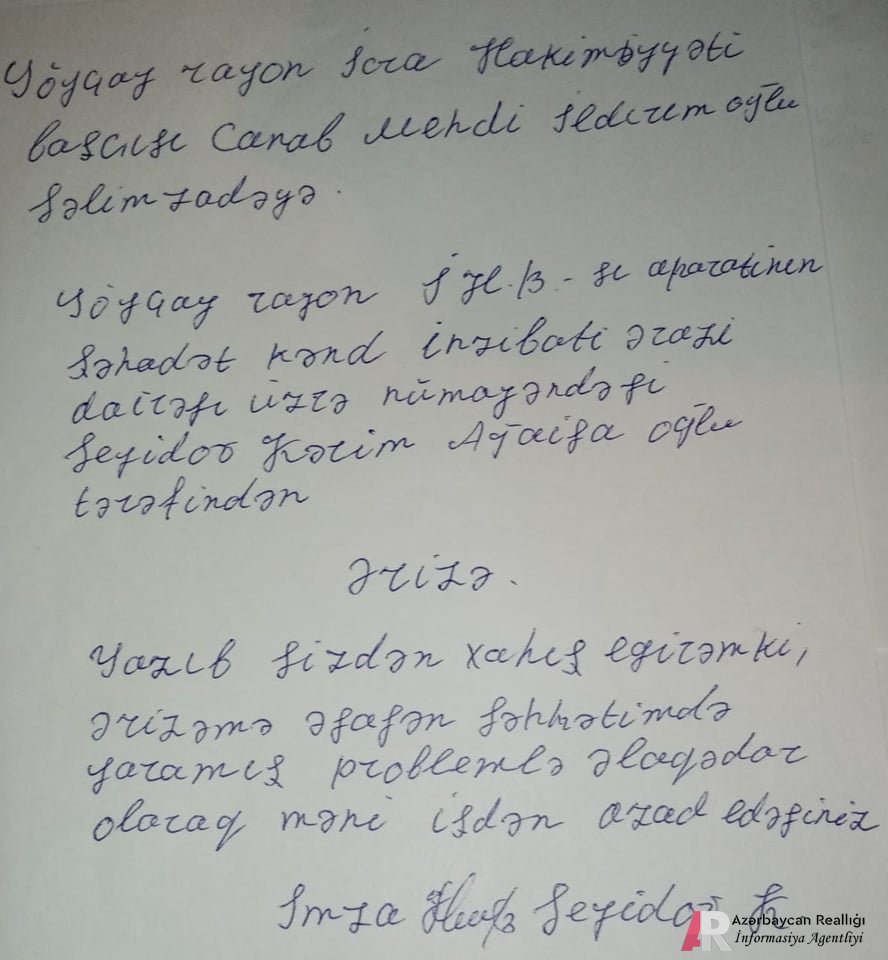 Göygöy rayon İcra Hakimiyyəti
başçısı Canab Mehdi İldırım oğlu
Səlimzadəyə.
Göygöy rayon İ.H.B-sı aparatının
Şəhadət kənd inzibati ərazi
dairəsi üzrə nümayəndəsi
Seyidov Kərim Ağaisa oğlu
tərəfindən
Ərizə.
Yazıb sizdən xahış egirəmki,
ərizəmə əsasən səhhətimdə
yaramış problemlə əlaqədar
olaraq məni işdən azad edəsiniz
İmza Seyidov K
AR Azərbaycan Reallığı
İnformasiya Agentliyi